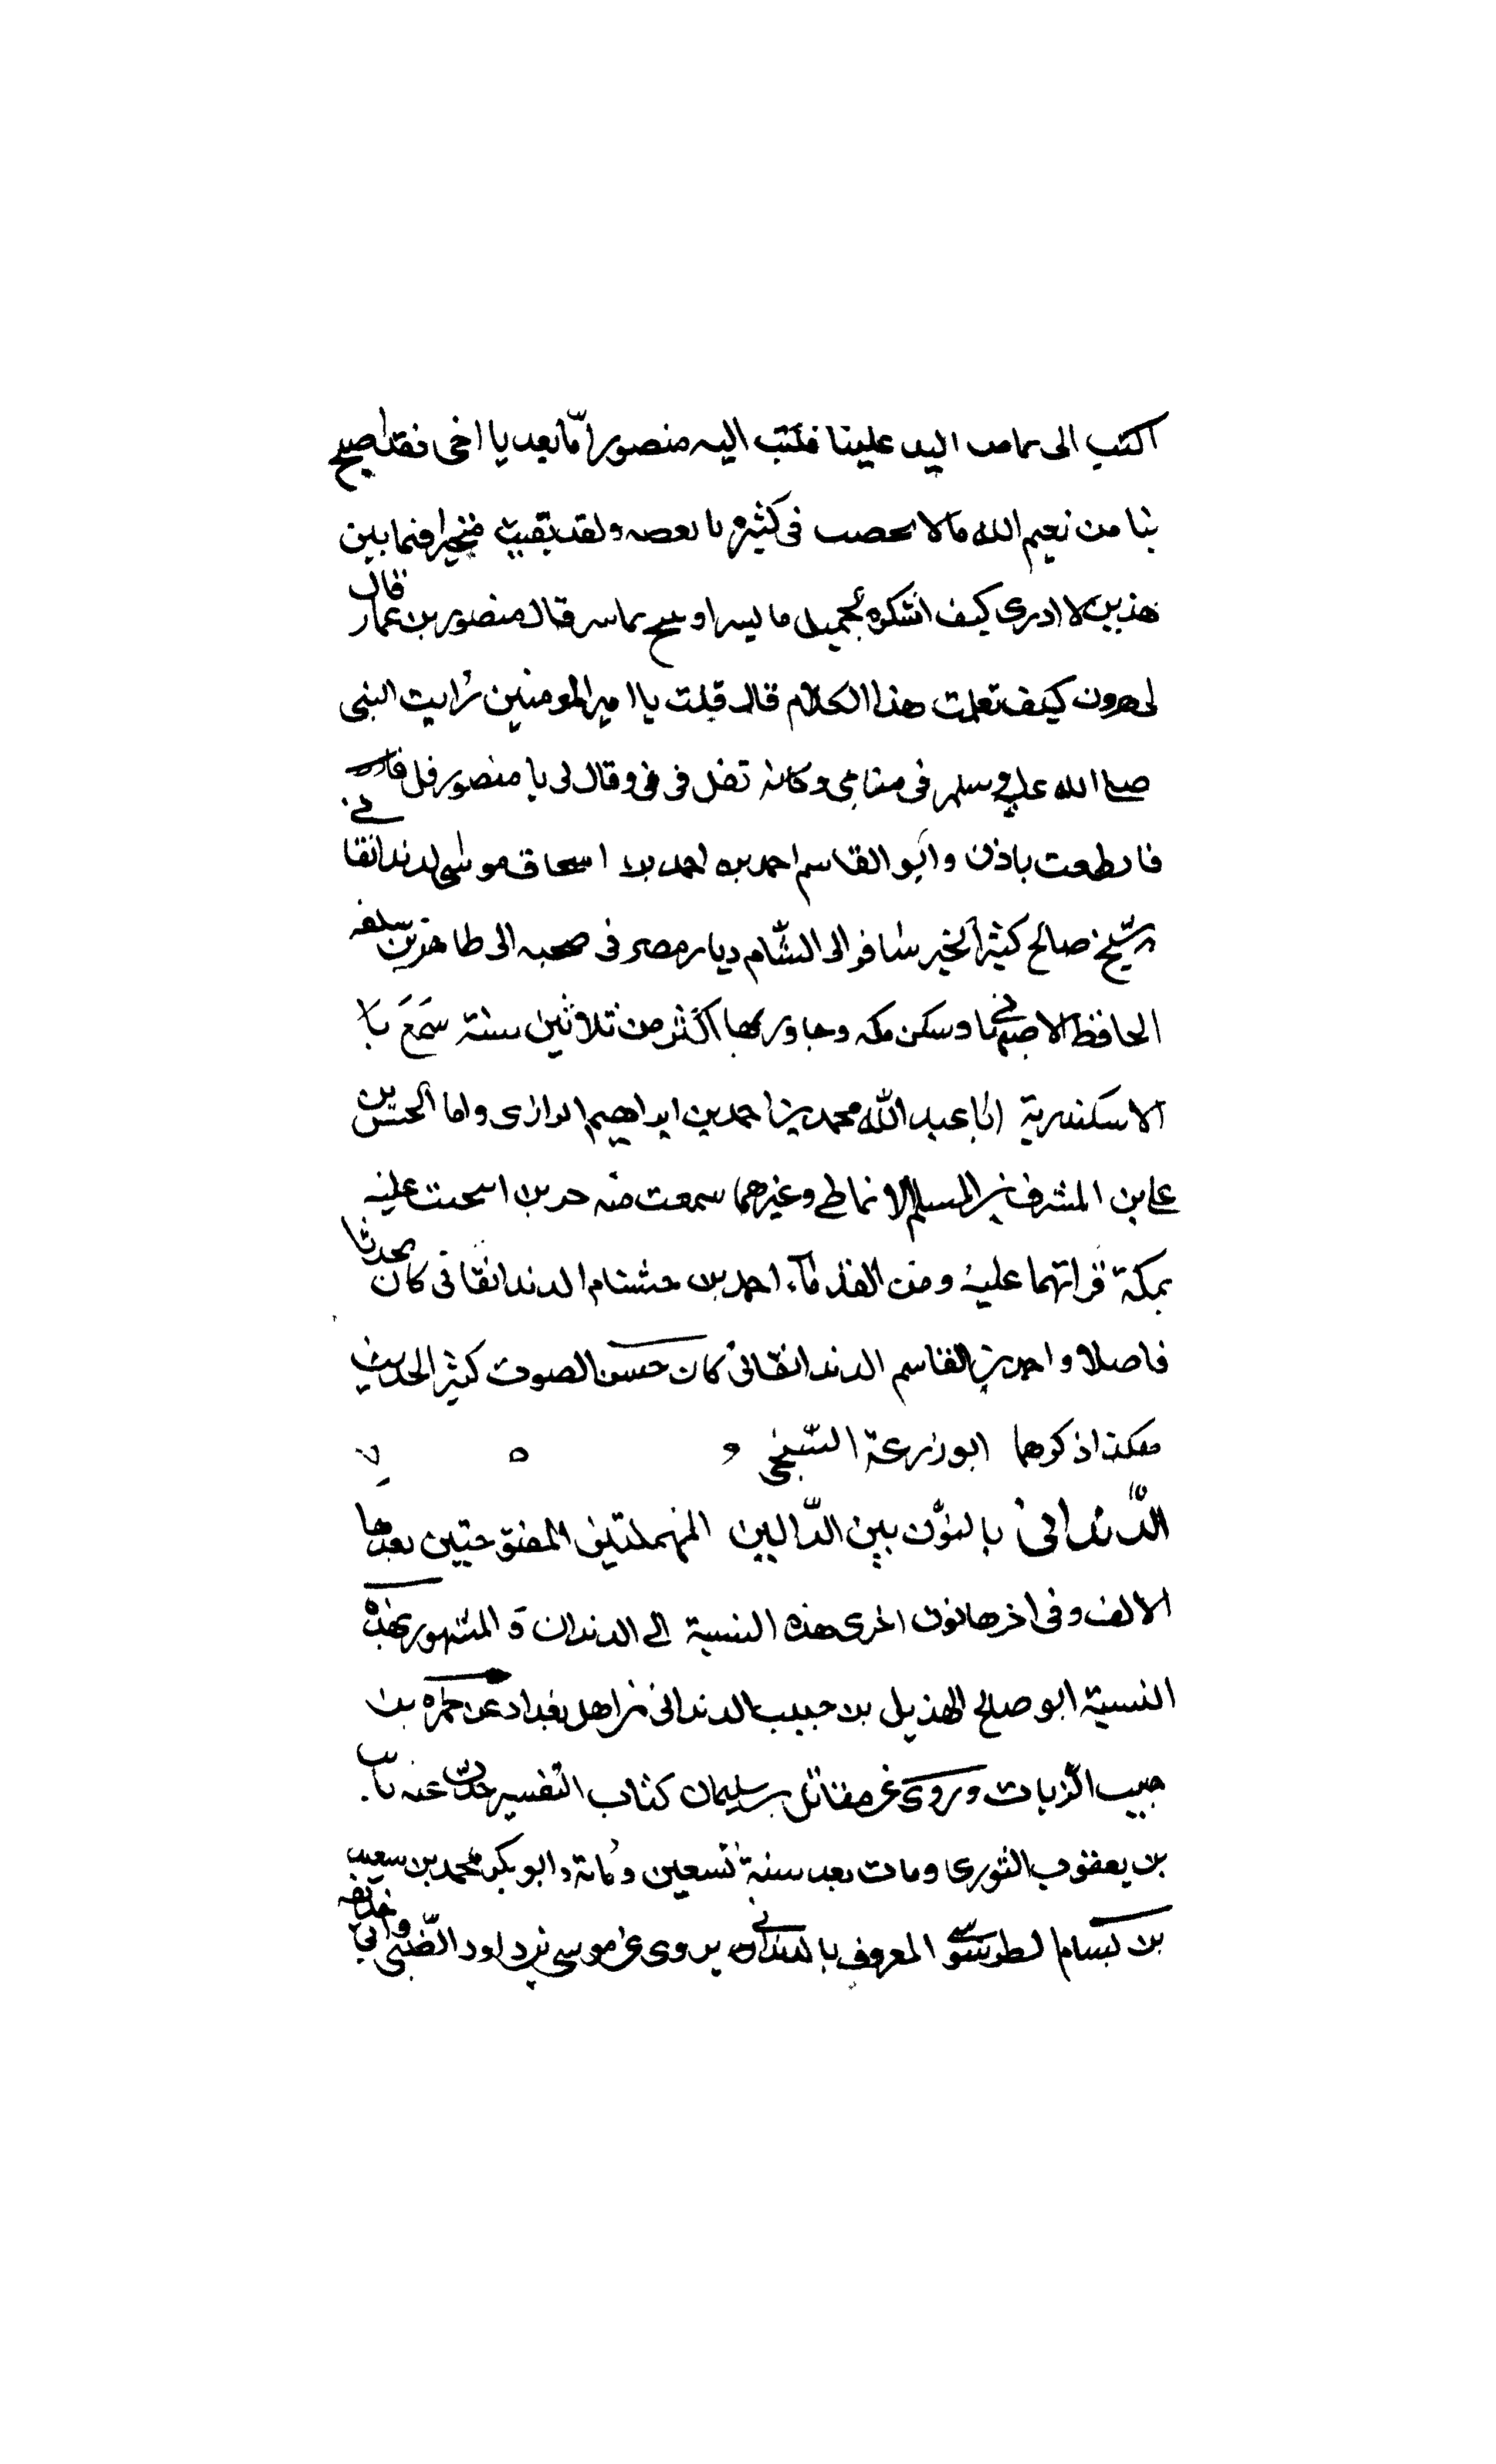 اكتب الى علينا فكتب اليه منصور امّا بعد يا اخى فقد اصبح
بنا من نعيم الله مالا فى كثيرة ولقد بقيت فيما بين
هذين لا ادرى كيف اشكره قال منصور بن عمار قال
لى هرون كيف تعلمت هذا الكلام قال قلت يا امير المومنين رايت النبى
صلى الله عليه وسلم فى منامى وكانه تفل فى فى وقال لى يا منصور قل
باذن وابو القاسم احمد بن احمد بن اسحاق موسى الدندانقانى
شيخ صالح كثير الخير سافر الى الشام ديار مصر فى صحبه ابى طاهر بن سلفه
الحافظ الاصبهانى وسكن مكه وجاور بها اكثر من ثلاثين سنة سَمَعَ با
الاسكندرية ابا عبد الله محمد بن احمد بن ابراهيم الرازى وابا الحسن بن
على بن المشرف بن المسلم الانماطى وغيرهما سمعت منه عليه
بمكة قراتهما عليه ومن القدماء احمد بن خشنام الدندانقانى كان محدثا
فاضلا واحمد بن القاسم الدندانقانى كان حسن الصوت كثير الحديث
هكذا ذكرهما ابو زرعة السنجى
الدَّندانى بالنون بين الدّالين المهملتين المفتوحتين بعدها
الالف وفى اخرها نون اخرى هذه النسبة الى الدندان و المشهور بهذه
النسبة ابو صالح الهذيل بن حبيب الدندانى من اهل بغداد عن حمزه بن
حبيب الزيات وروى عن مقاتل بن سليمان كتاب التفسير حدث عنه ثابت
بن يعقوب الثورى ومات بعد سنة تسعين ومائة وابو بكر محمد بن سعيد
بن بسام الطرسوسى المعروف بالدندانى يروى عن موسى بن داود الضّبى وابى حذيفه